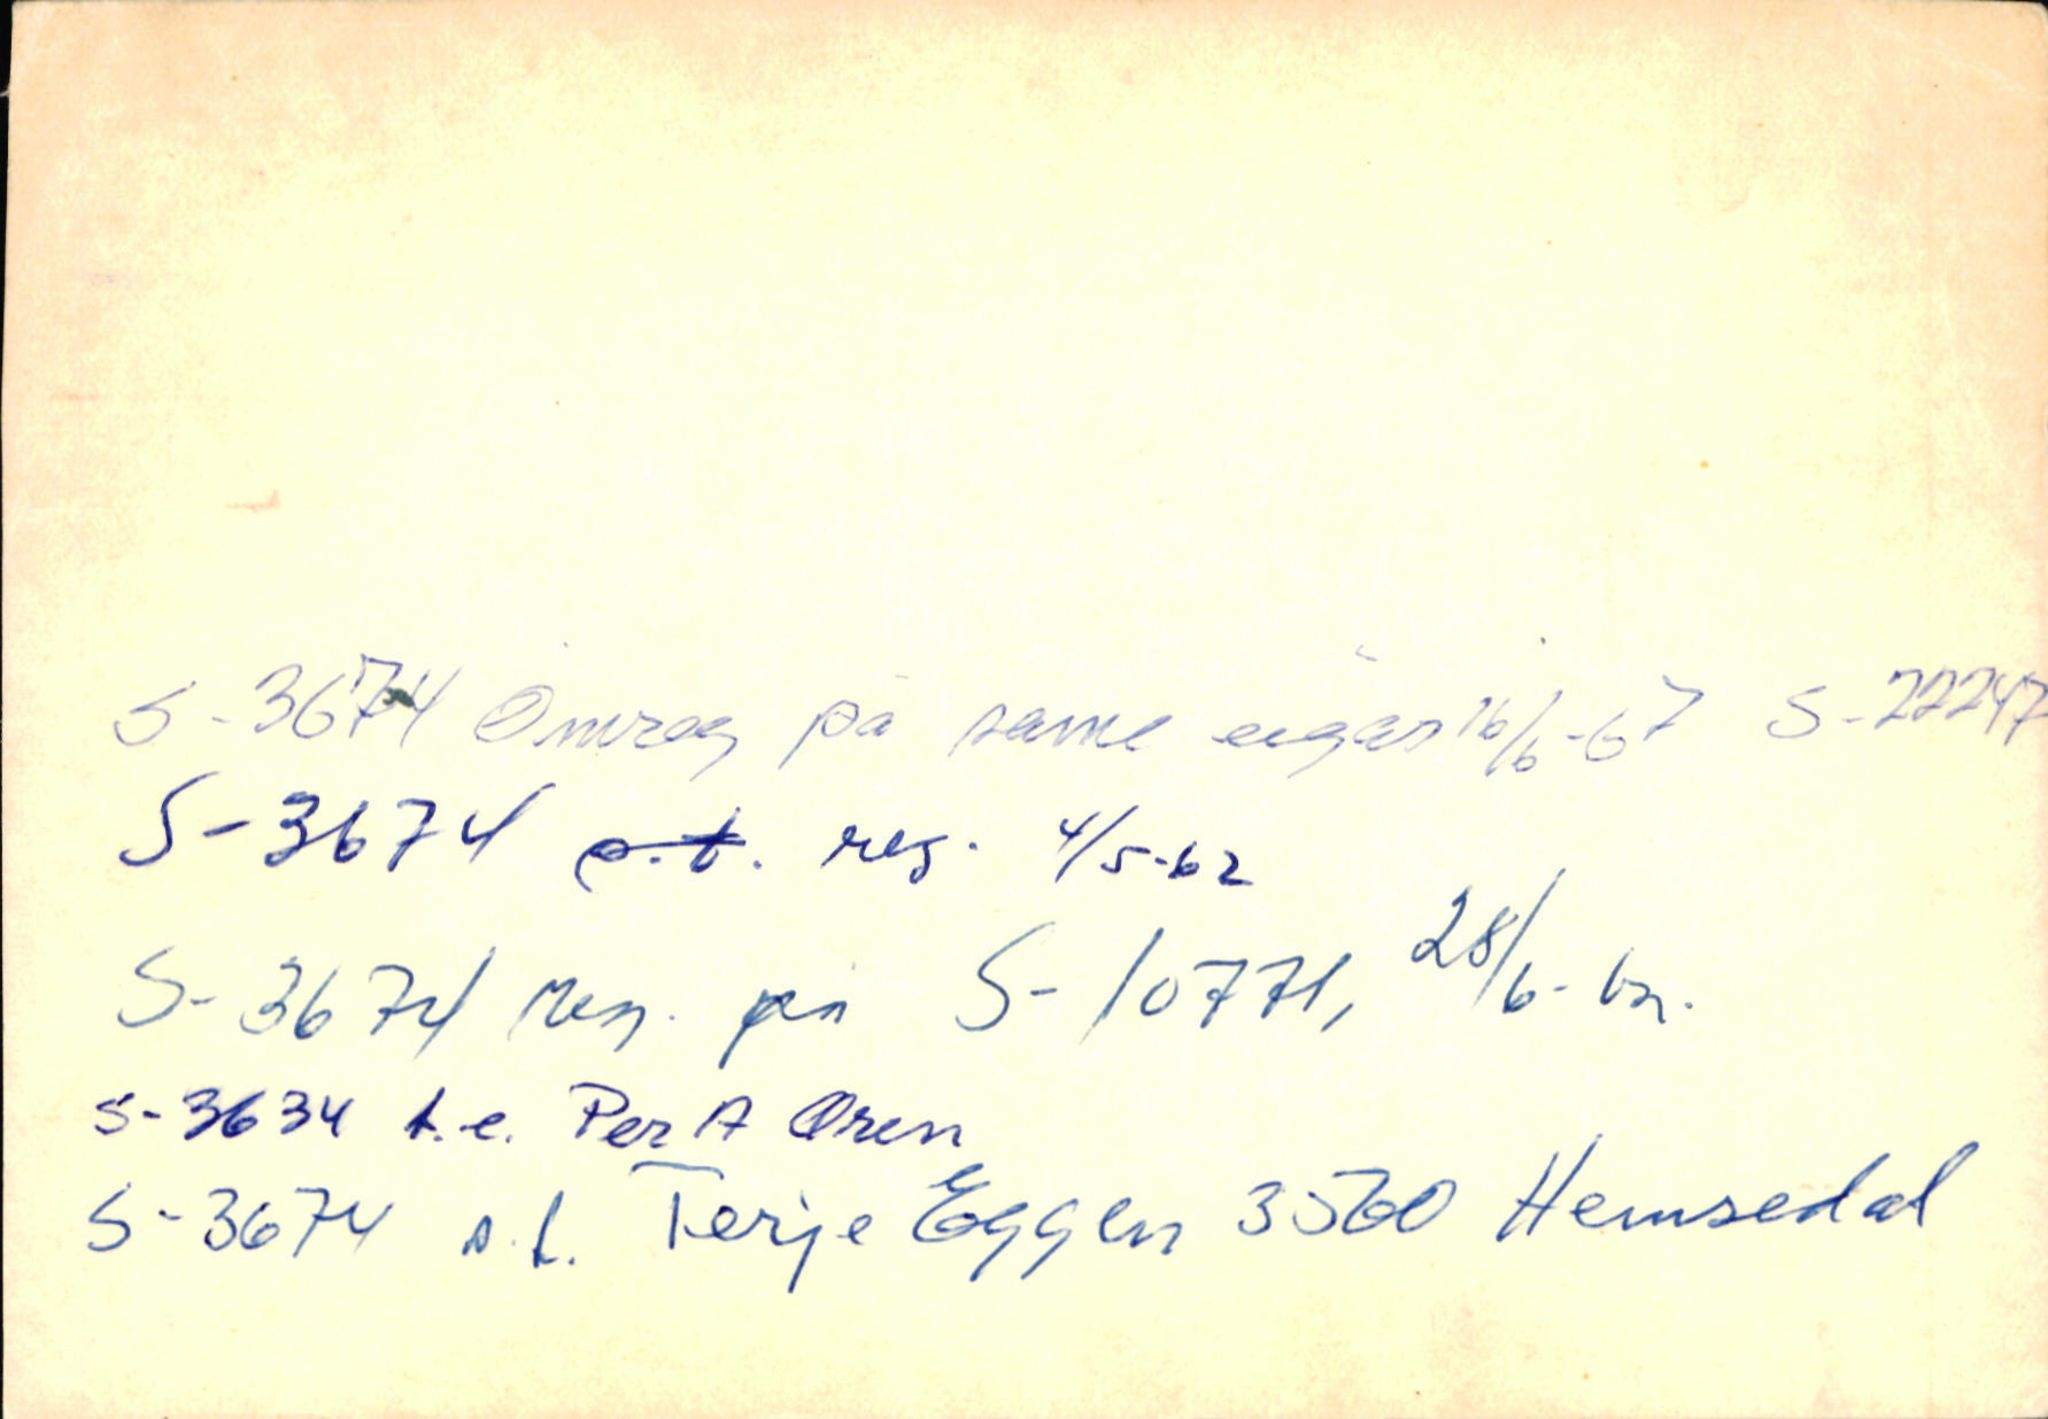 S-3674 Omreg på same eigar 16/6-67 S-22247
S-3674 o.t. reg. 4/5-62
S-3674 reg. på S-10771, 28/6-62.
S-3634 t.e. Per A Øren
S-3674 s.t. Terje Eggen 3560 Hemsedal